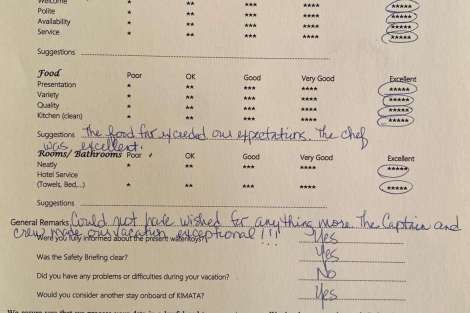 Welcome * ** *** **** *****
Polite * ** *** **** *****
Availability * ** *** **** *****
Service * ** *** **** *****
Suggestions
Food Poor OK Good Very Good Excellent
Presentation * ** *** **** *****
Variety * ** *** **** *****
Quality * ** *** **** *****
Kitchen (clean) * ** *** **** *****
Suggestions The food far exceeded our expectations. The chef
was excellent.
Rooms/ Bathrooms Poor OK Good Very Good Excellent
Neatly * ** *** **** *****
Hotel Service
(Towels, Bed,...) * ** *** **** *****
Suggestions
General Remarks Could not have wished for anything more The Captain and
crew made our vacation exceptional!!!
Were you fully informed about the present watertoys? Yes
Was the Safety Briefing clear? Yes
Did you have any problems or difficulties during your vacation? No
Would you consider another stay onboard of KIMATA? Yes